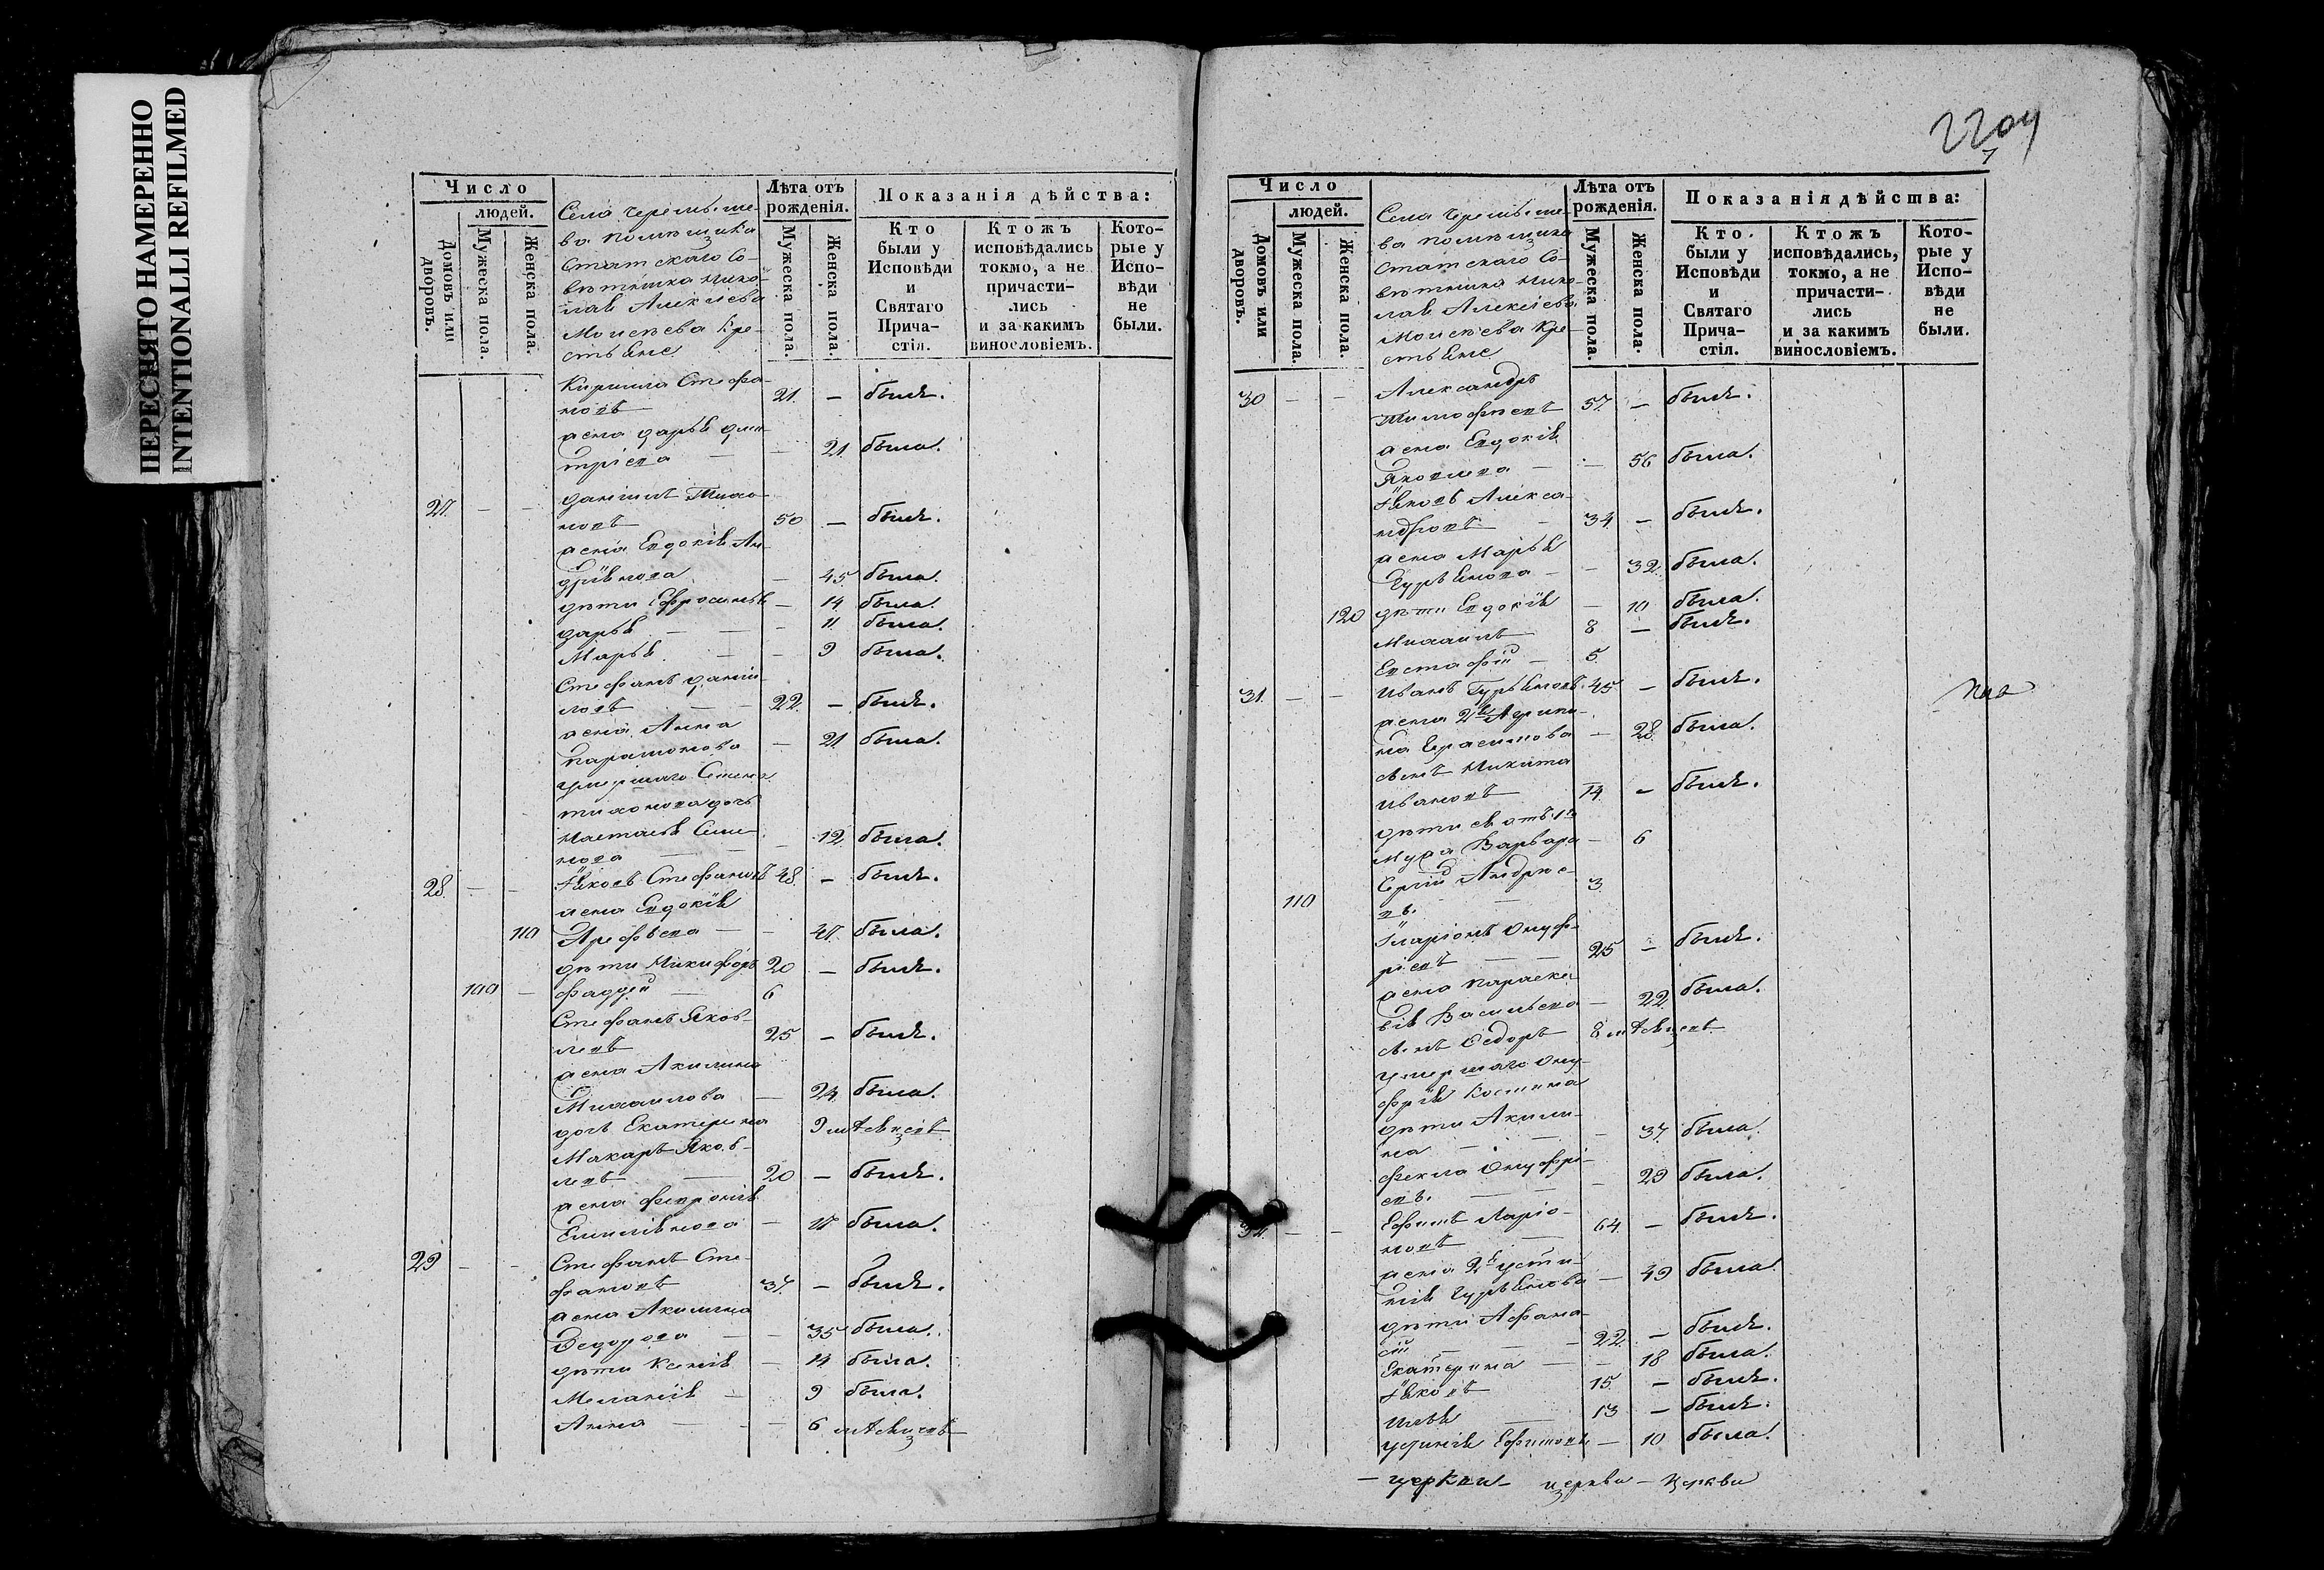 ПЕРЕСНЯТО НАМЕРЕННО
INTENTIONALLI REFILMED
Число
людей.
Домовъ или дворовъ.
Мужеска пола.
Женска пола.
Села
ва помѣщика
Статскаго Со-
вѣтника Нико-
лая Алексѣева
Моисѣева Кре-
стьяне
Лѣта отъ рожденія.
Мужеска пола.
Женска пола.
Показанія дѣйства:
Кто были у Исповѣди и Святаго Прича-стія.
Ктожъ исповѣдались токмо, а не причасти-лись и за какимъ винословіемъ.
Кото-рые у Испо-вѣди не были.
Кирилла Стефа-
новъ 21. — былъ.
жена дарья дми-
тріева — — 21. была.
27. — — даніилъ Тихо-
новъ 50 — былъ.
жена Евдокія Ан-
дріянова — 45. была.
дѣти Ефросинья — 14 была.
дарья — — — 11 была.
Марья — — 9 была.
Стефанъ даніи-
ловъ — — 22. — былъ.
жена Анна
Парамонова — 21. была.
умершаго Семена
тихонова дочь
Настасья Семе-
нова — — — 12. была.
28. — — Яковъ Стефановъ 48. — былъ.
жена Евдокія
110 Арефьева — — 47. была.
дѣти Никифоръ 20 — былъ.
100 — фаддей — 6
Стефанъ Яков-
левъ 25 — былъ.
жена Акилина
Михаилова — 24. была.
дочь Екатерина 9 мѣсяцевъ
Макаръ Яков-
левъ — 20 — былъ.
жена февронія
Емилиянова — 17 была.
29 — — Стефанъ Сте-
фановъ 37. — былъ.
жена Акилина
Ѳедорова — — 35 была.
дѣти Ксенія — 14 была.
Меланія — 9 была.
Анна — — — 6 мѣсяцевъ
Число
людей.
Домовъ или дворовъ.
Мужеска пола.
Женска пола.
Села
ва помѣщика
Статскаго Со-
вѣтника Нико-
лая Алексіева
Моисѣева Кре-
стьяне
Лѣта отъ рожденія.
Мужеска пола.
Женска пола.
Показанія дѣйства:
Кто были у Исповѣди и Святаго Прича-стія.
Ктожъ исповѣдались, токмо, а не причасти-лись и за какимъ винословіемъ.
Кото-рые у Испо-вѣди не были.
30 — — Александръ
Тимофѣевъ 57. — былъ.
жена Евдокія
Яковлева — — 56 была.
Яковъ Алекса-
ндровъ — 34. — былъ.
жена Марья
Гурьянова — — 32. была.
120 дѣти Евдокія — 10 была.
Михаилъ 8 — былъ.
Евстафій — 5.
31. — — Иванъ Гурьяновъ 45 — былъ.
жена 2я Агрипи-
на Герасимова — 28. была.
сынъ Никита
Ивановъ 14. — былъ.
дѣти ея отъ 1го
мужа Варвара — 6
110 Сергій Андрее-
въ. — — 3.
Иларіонъ Онуф-
ріевъ — — 25 — былъ.
жена Параске-
вія Васильева — 22. была.
сынъ Ѳедоръ 8 мѣсяцевъ
умершаго Ону-
фрія
дѣти Акили-
на — — — 37. была.
Фекла Онуфрі-
евъ. — — 29 была.
— — Ефимъ Ларіо-
новъ — 64. — былъ.
жена 2я усти-
нія Гурьянова — 49 была.
дѣти Афана-
сій — — — 22. — былъ.
Екатерина — — 18 была.
Яковъ 15. — былъ.
Илья — 13 — былъ.
устинія Ефимовы — 10 была.
— церкви — церкви — церкви